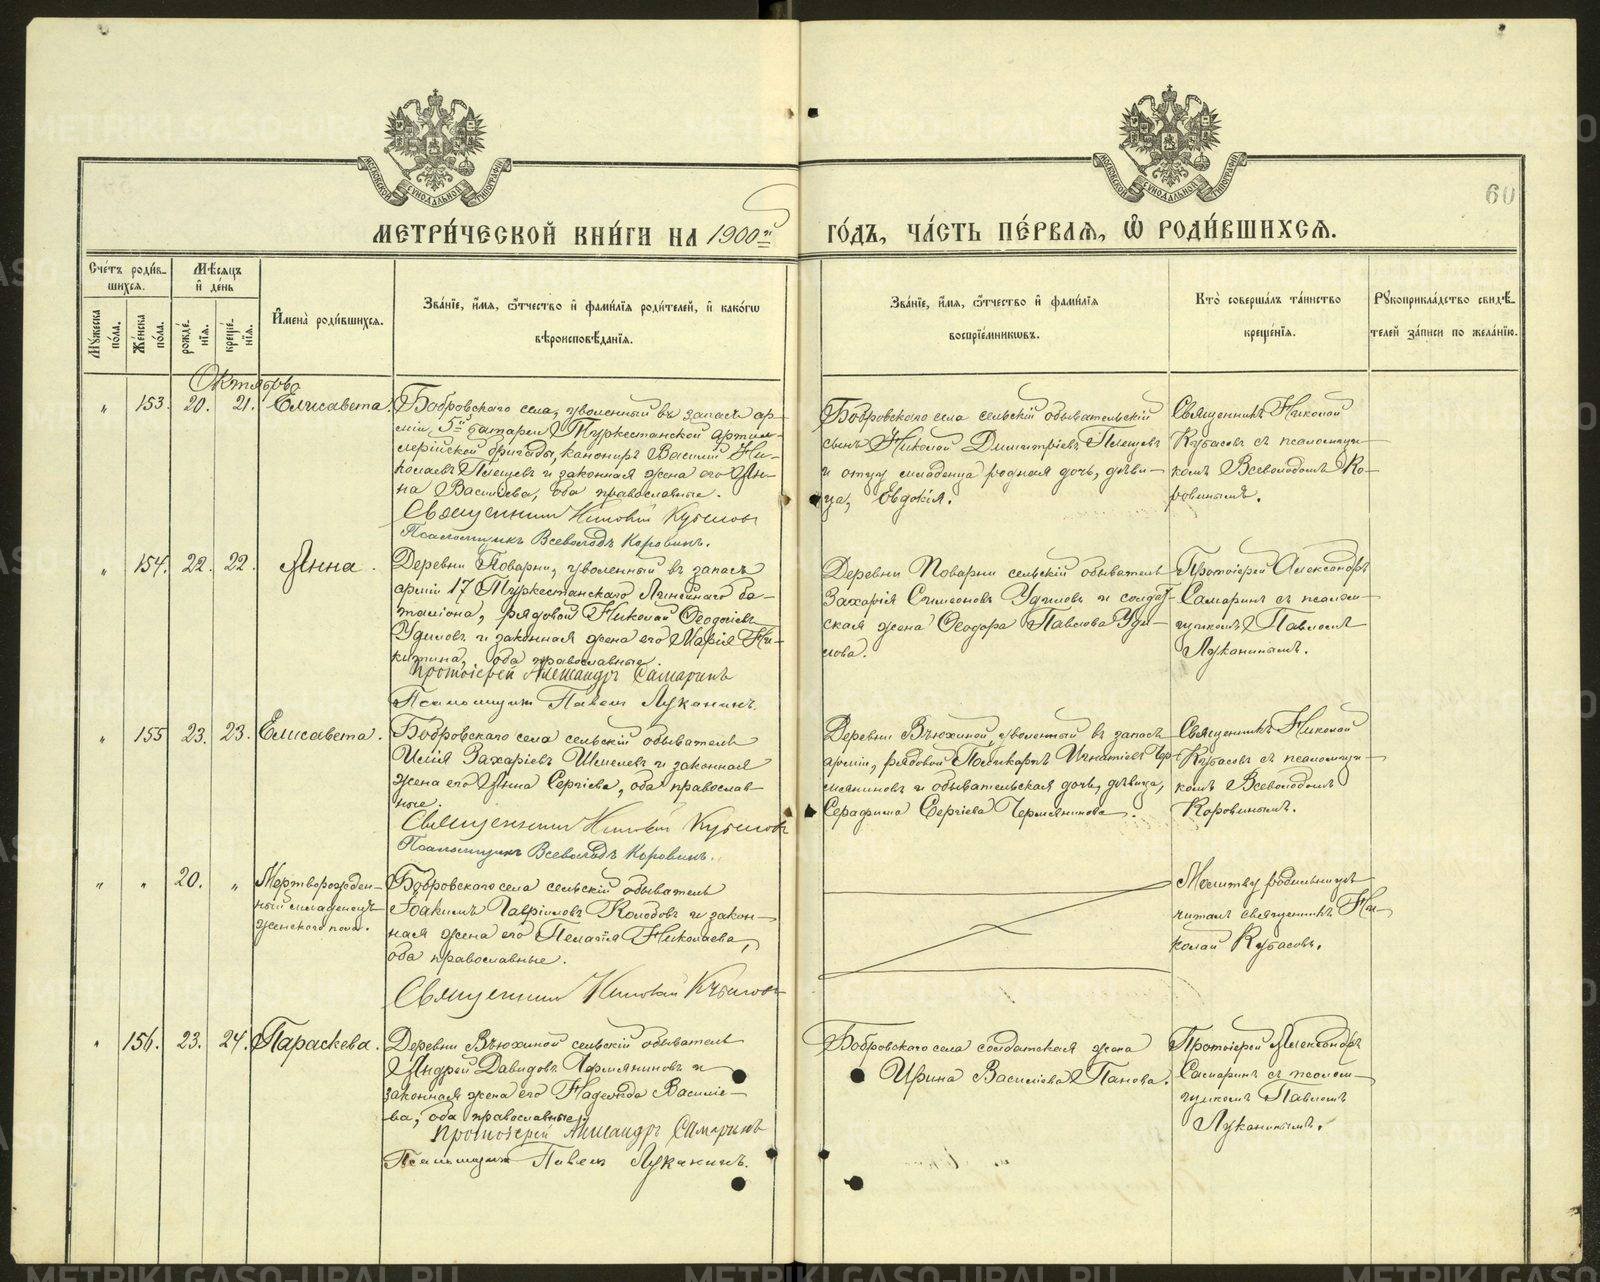 МОСКОВСКОЙ СѴНОДАЛЬНОЙ ТИПОГРАФІИ
МОСКОВСКОЙ СѴНОДАЛЬНОЙ ТИПОГРАФІИ
60
МЕТРИ́ЧЕСКОЙ КНИ́ГИ НА 1900й ГО́ДЪ, ЧА́СТЬ ПЕ́РВАЯ, Ѽ РОДИ́ВШИХСЯ.
Сче́тъ роди́в-
шихся.
Му́жеска по́ла.
Же́нска по́ла.
Мѣ́сяцъ
и҆ де́нь
рожде́-
нїя.
креще́-
нїя.
И҆мена̀ роди́вшихся.
Зва́нїе, и҆́мя, ѻ҆́тчество и҆ фами́лїя роди́телей, и҆ како́гѡ
вѣроисповѣ́данїя.
Зва́нїе, и҆́мя, ѻ҆́тчество и҆ фами́лїя
воспрїе́мникѡвъ.
Кто̀ соверша́лъ та́инство
креще́нїя.
Рꙋкоприкла́дство свидѣ́-
телей за́писи по жела́нїю.
Октябрь
" 153. 20. 21. Елисавета.
Бобровскаго села, уволенный въ запасъ ар-
міи, 5й батареи Туркестанской артил-
лерійской бригады, канониръ Василій Ни-
колаевъ Плещевъ и законная жена его Ан-
на Васильева, оба православные.
Священникъ Николай Кубасовъ
Псаломщикъ Всеволодъ Коровинъ.
Бобровскаго села сельскій обывательскій
сынъ Николай Димитріевъ Плещевъ
и отцу младенца родная дочь, дѣви-
ца, Евдокія.
Священникъ Николай
Кубасовъ съ псаломщи-
комъ Всеволодомъ Ко-
ровинымъ.
" 154. 22. 22. Анна.
Деревни Поварни, уволенный въ запасъ
арміи 17 Туркестанскаго Линейнаго ба-
таліона, рядовой Николай Ѳеодосіевъ
Удиловъ и законная жена его Марія Ни-
китина, оба православные.
Протоіерей Александръ Самаринъ
Псаломщикъ Павелъ Луканинъ.
Деревни Поварни сельскій обыватель
Захарія Симеоновъ Удиловъ и солдат-
ская жена Ѳеодора Павлова Уди-
лова.
Протоіерей Александръ
Самаринъ съ псалом-
щикомъ Павломъ
Луканинымъ.
" 155 23. 23. Елисавета.
Бобровскаго села сельскій обыватель
Илія Захаріевъ Шмелевъ и законная
жена его Анна Сергіева, оба православ-
ные.
Священникъ Николай Кубасовъ
Псаломщикъ Всеволодъ Коровинъ.
Деревни Вьюхиной, уволенный въ запасъ
арміи, рядовой Поликарпъ Игнатіевъ Чер-
мяниновъ и обывательская дочь, дѣвица,
Серафима Сергіева Чермянинова.
Священникъ Николай
Кубасовъ съ псаломщи-
комъ Всеволодомъ
Коровинымъ.
" " 20. " Мертворожден-
ный младенецъ
женскаго пола.
Бобровскаго села сельскій обыватель
Іоакимъ Гавріиловъ Колобовъ и закон-
ная жена его Пелагія Николаева,
оба православные.
Священникъ Николай Кубасовъ
Молитву родильницѣ
читалъ священникъ Ни-
колай Кубасовъ.
" 156. 23. 24. Параскева.
Деревни Вьюхиной сельскій обыватель
Андрей Давидовъ Чермяниновъ и
законная жена его Надежда Василіе-
ва, оба православные.
Протоіерей Александръ Самаринъ
Псаломщикъ Павелъ Луканинъ.
Бобровскаго села солдатская жена
Ирина Василіева Панова.
Протоіерей Александръ
Самаринъ съ псалом-
щикомъ Павломъ
Луканинымъ.
METRIKI.GASO-URAL.RU